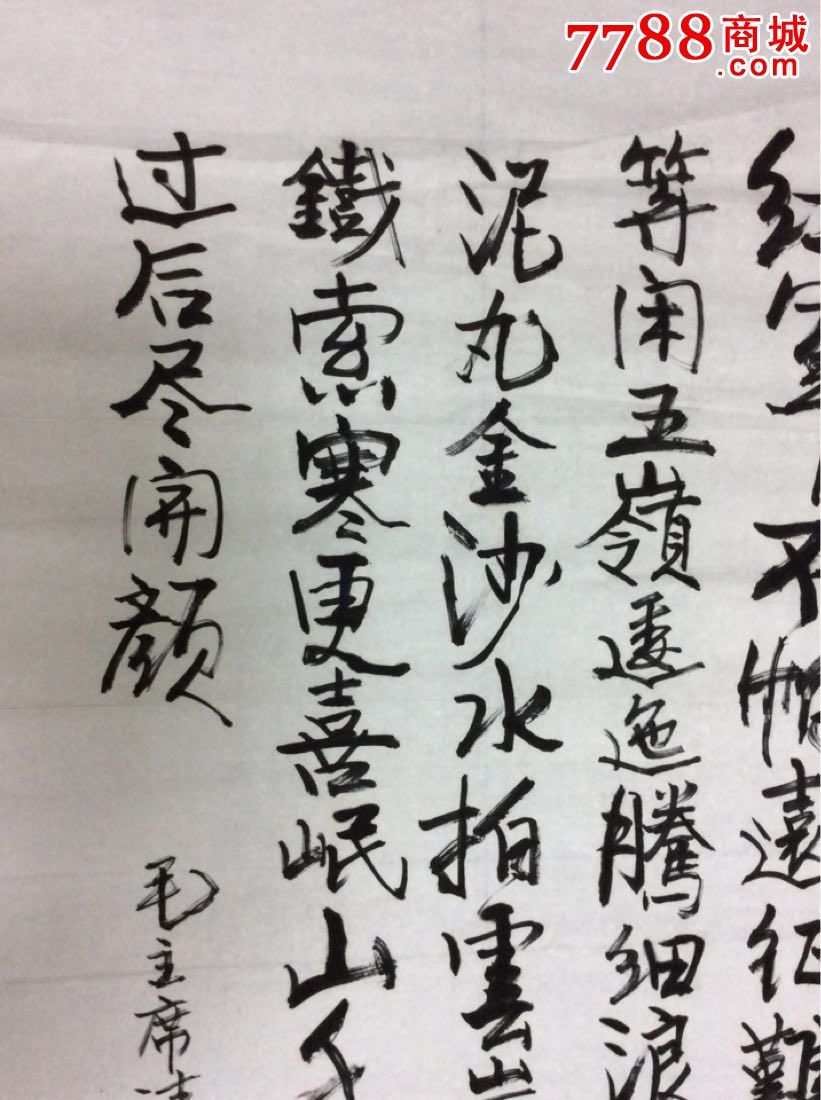 7788商城
.com
红军不怕遠征難
等闲五嶺逶迤騰细浪
泥丸金沙水拍雲崖
鐵索寒更喜岷山千
过后尽开颜
毛主席诗